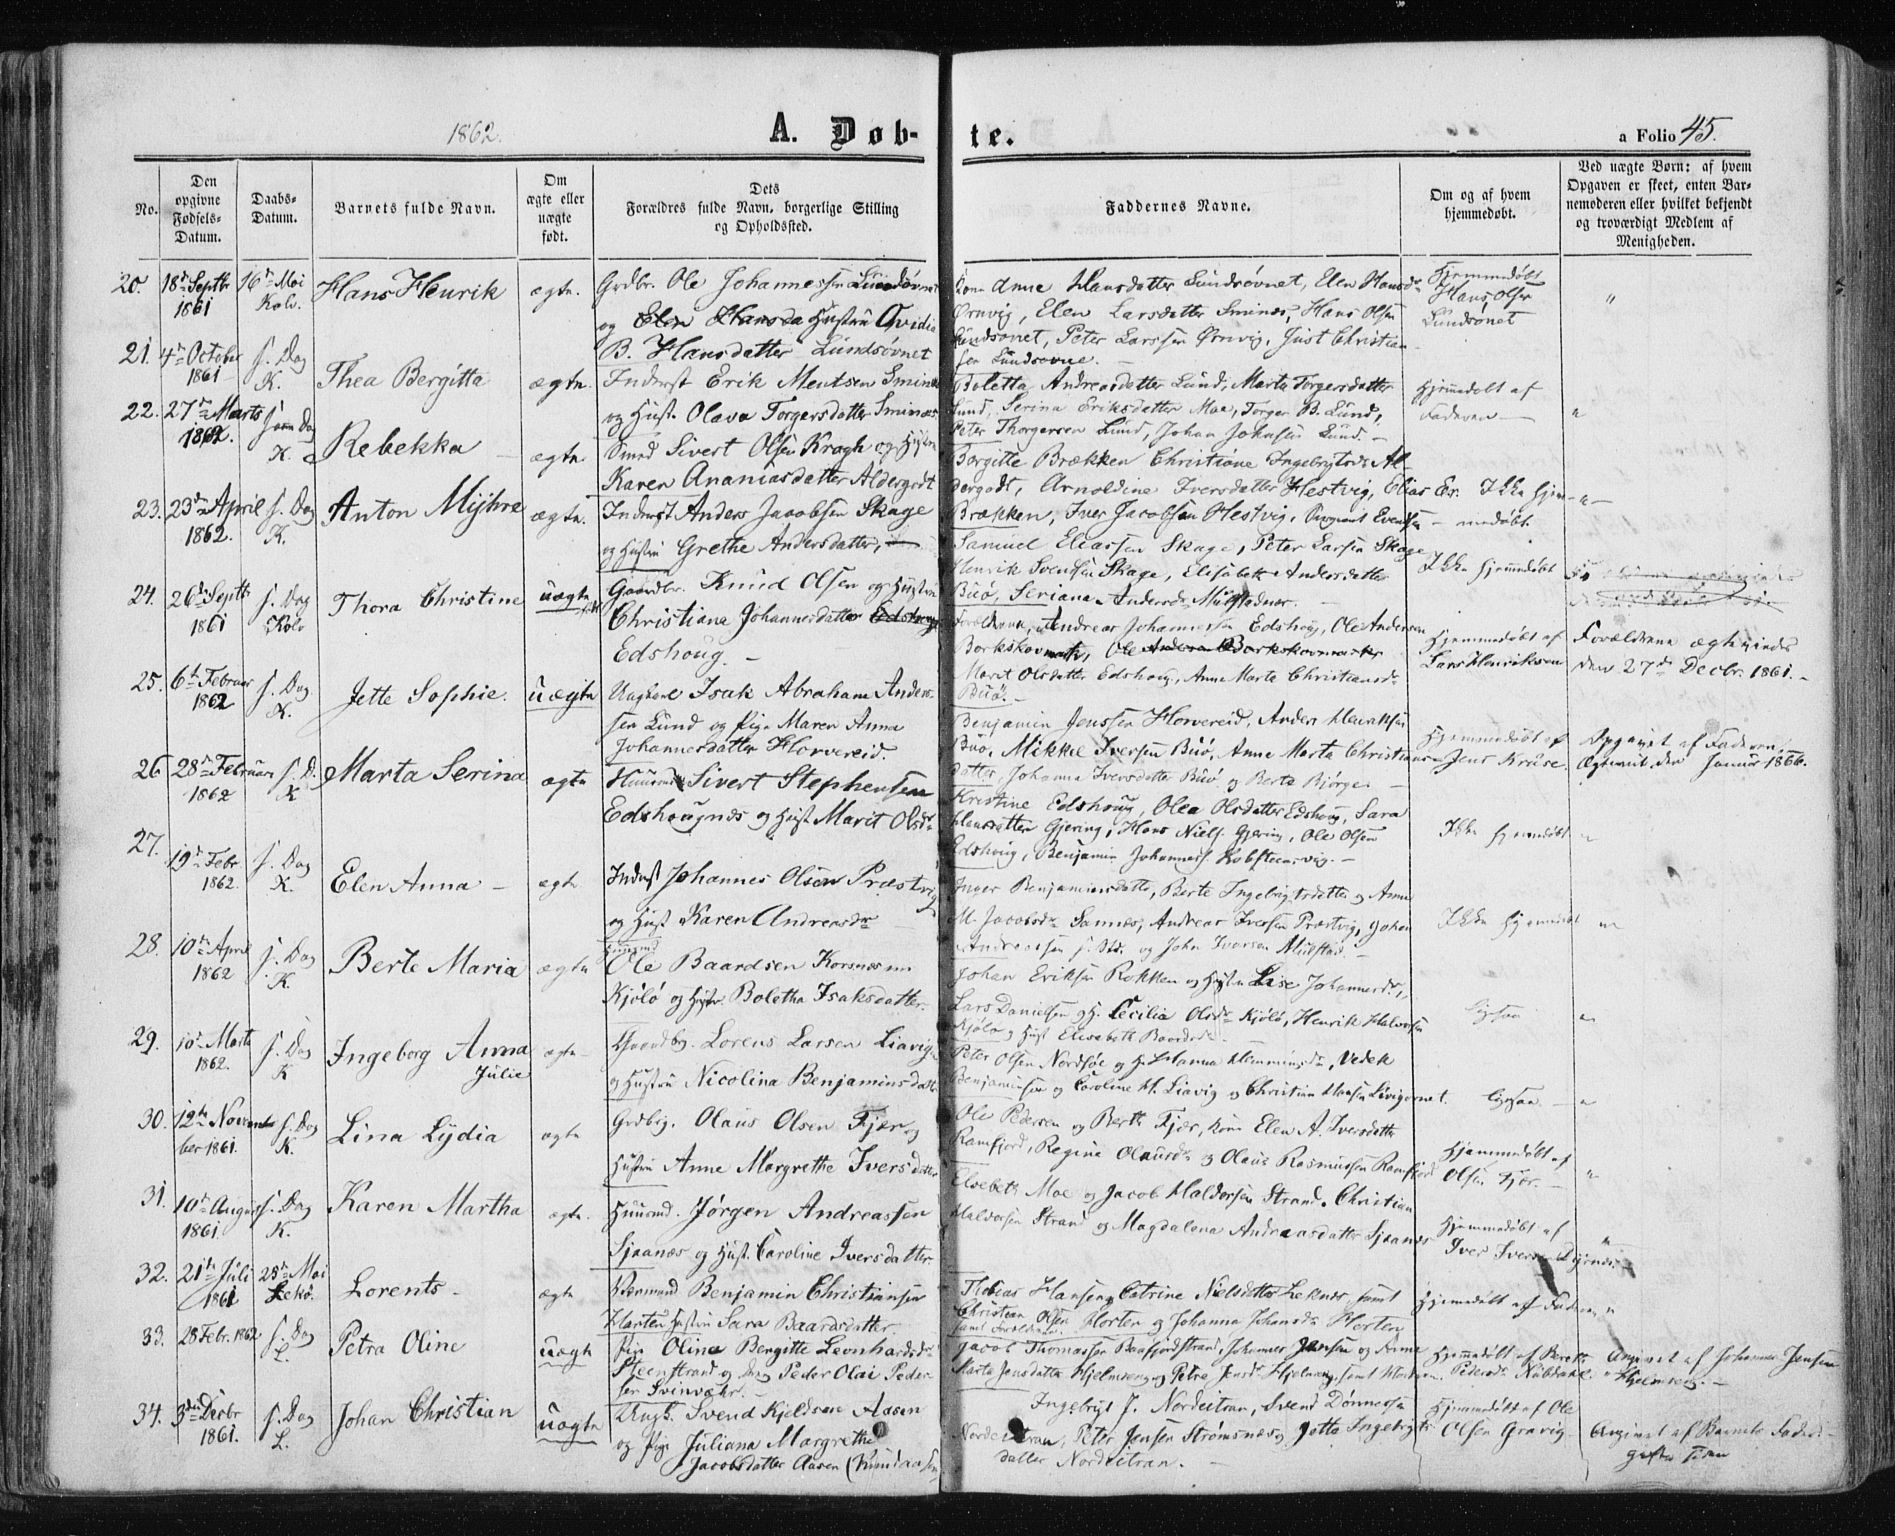 1862.
A. Døb-
te.
a Folio 45.
No.
Den opgivne Fødsels-Datum.
Daabs-Datum.
Barnets fulde Navn.
Om ægte eller uægte født.
Dets Forældres fulde Navn, borgerlige Stilling og Opholdssted.
Faddernes Navne.
Om og af hvem hjemmedøbt.
Ved uægte Børn: af hvem Opgaven er skeet, enten Barnemoderen eller hvilket bekjendt og troværdigt Medlem af Menigheden.
20. 18de Septbr 1861 16de Mai Kolv. Hans Henrik ægte.
Grdbr. Ole Johannessen Lundsøvnet
og Elen Hansda Hustru Ovidia
B. Hansdatter Lundsøvnet
Kone Anne Hansdatter Lundsøvnet, Elen Hansdr
Ørnvig, Elen Larsdatter Sminæs, Hans Olsen
Lundsøvnet, Peter Larssen Ørnvig, Just Christian-
sen Lundsøvne. –
Hjemmedøbt
Hans Olsen
Lundsønet
"
21. 4de October 1861 s. Dag K. Thea Bergitta ægte.
Inderst Erik Mentsen Sminæs
og Hust. Olava Torgersdatter Sminæs
Boletta Andreasdatter Lund, Marta Torgersdatter
Lund, Serina Eriksdatter Moe, Torger B. Lund,
Peter Thorgersen Lund, Johan Johnsen Lund. –
Hjemmedøbt af
Faderen –
"
22. 27de Marts 1862. samme Dag K. Rebekka – ægte
Smed Sivert Olsen Kragh og Hustru
Karen Ananiasdatter Aldergodt
Borgitte Brækken Christiane Ingebrigtsdr Al-
dergodt, Arnoldine Iversdatter Hestvig, Elias Er.
Brækken, Iver Jacobsen Hestvig, Evensen –
Ikke hjem-
medøbt.
"
23. 23de April 1862. s. Dag K. Anton Mijhre ægte.
Inderst Anders Jacobsen Skage
og Hustru Grethe Andersdatter,
Samuel Eliassen Skage, Peter Larsen Skage
Henrik Svendsen Skage, Elisabeth Andersdatter
Buø, Seriana Andersdr Mulstadnær.
Ikke hjemmedøbt
24. 26de Septbr 1861 s. Dag Kolv Thora Christine uægte født
Gaardbr. Knud Olsen og Hustru
Christiane Johannesdatter Edshoug
Edshoug. –
Forældrene, Andreas Johannessen Edshoug, Ole Andersen
Borkskovmark, Ole Andersen Borkskovmarker
Marit Olsdatter Edshoug, Anne Marta Christiansdr
Buø. –
Hjemmedøbt af
Lars Henriksen
Forældrene ægteviede
den 27de Decbr. 1861. –
25. 6te Februar 1862 s. Dag K. Jette Sophie. uægte
Ungkarl Isak Abraham Anders-
sen Lund og Pige Maren Anna
Johannesdatter Horvereid.
Benjamin Jenssen Horvereid, Anders Henriksen
Buø, Mikkel Iversen Buø, Anne Marta Christians-
datter, Johanna Iversdatter Buø og Berta Bjørge –
Hjemmedøbt af
Jens Kruse.
Opgivet af Faderen,
Ægteviet den Januar 1866.
26 28de Februar 1862 s. D. K Marta Serina ægte
Huusmd Sivert Stephensen
Edshougnæs og Hust Marit Olsdr
Kristine Edshoug, Olea Olsdatter Edshoug, Sara
Hansdatter Gjering, Hans Niels. Gjering, Ole Olsen
Edshoug, Benjamin Johanness. Kobsteensvig. –
Ikke hjemmedøbt
"
27. 19de Febr 1862. s. Dag K. Elen Anna – ægte
Inderst Johannes Olsen Præstvig
og Hust Karen Andreasdr
Inger Benjaminsdatter, Berte Ingebrigtsdatter og Anne
M. Jacobsdr Samnes, Andreas Iversen Præstvig, Johan
Andreassen s. Std. og John Ivarsen Mulstad. –
Ikke hjemmedøbt
"
28. 10de April 1862 s. Dag K. Berte Maria ægte
Huusmd Ole Baardsen Korsnæs
Kjølø og Hustru Boletha Isaksdatter
Johan Eriksen Rokken og Hustru Lise Johannesdr.,
Lars Danielsen og H. Cecilia Olsdr Kjølø, Henrik Halvorsen
Kjølø og Hust Elisabeth Baardsdr. –
Ligesaa
"
29. 10de Marts 1862. s. Dag K Ingeborg Anna Julie ægte –
Gaardbg. Lorens Larsen Liavig
og Hustru Nicolina Benjaminsdatter
Peter Olsen Nordsøe og H. Hanna Hemmingsdr, Vedek
Benjaminsen og Caroline M. Liavig og Christian Hansen
Ligesaa –
"
30. 12te November 1861. s. Dag K. Lina Lydia ægte
Grdbrg. Olaus Olsen Fjær og
Hustru Anne Margrethe Iversdatter
Ole Pedersen og Berth Fjær, Kone Elen A. Iversdatter
Ramfjord, Regine Olausdr og Olaus Rasmussen Ramfjord
Hjemmedøbt af
Olsen Fjær. –
"
31. 10de August 1861. s. Dag K. Karen Martha ægte.
Huusmd. Jørgen Andreassen
Sjaanæs og Hust. Caroline Iversdatter
Elsebeth Moe og Jacob Haldorsen Strand, Christian
Haldorsen Strand og Magdalena Andreasdatter Sjaanæs
Hjemmedøbt af
Iver Iversen Dyrnes –
"
32. 21de Juli 1861 25de Mai Lekø. Lorents – ægte
Benjamin Christiansen
Horten Hustru Sara Baardsdatter
Tobias Hansen, Catrine Nielsdatter Leknes, samt
Christian Olsen Horten og Johanna Johansdr Horten
samt Forældrene.
Hjemmedøbt af Faderen
"
33. 28 Febr. 1862 s. Dag L. Petra Oline uægte
Pige Oline Bergitte Leonhardsdr
Steenstrand og Ung Peder Olai Peder-
sen Svinvær. –
Jacob Thomassen Ranfjordstrand, Johannes Jensen og Anna
Marta Jensdatter Hjelmseng og Petra Jensdr Hjelmseng, samt
Hjemmedøbt af Berethe
Pedersdr Nubdahl
Angivet af Johannes Jensen
Hjelmseng. –
34. 3die Decbr 1861. s. Dag L. Johan Christian uægte
Ungk. Svend Kjeldsen Aasen
og Pige Juliana Margrethe
Jacobsdatter Aasen
Ingebrigt J. Nordeitran, Svend Dønnessen
Nordeitran, Peter Jensen Strømsnæs og Jotte Ingebrigts-
datter Nordeitran. –
Hjemmedøbt af Ole
Olsen Gravvig.
Angivet af Barnets Fader –